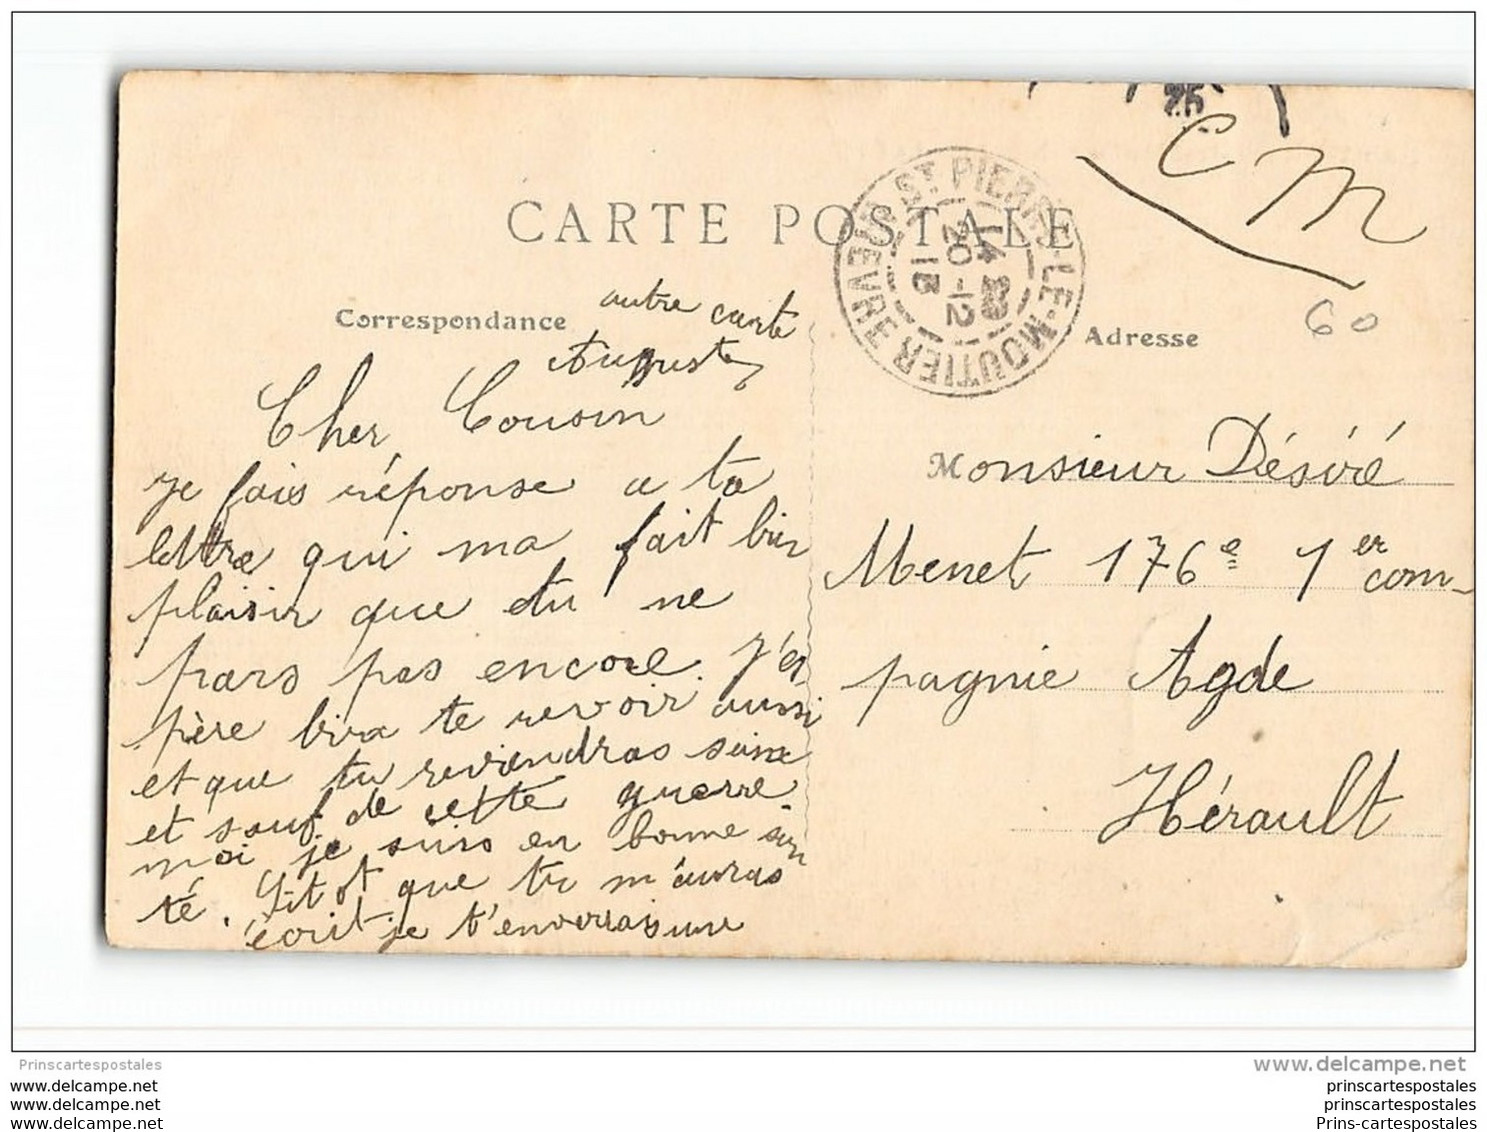 25
C M
CARTE POSTALE
ST PIERRE-LE-MOUTIER NIEVRE
14
20-12
15
Correspondance
Adresse
60
autre carte
Auguste
Cher Cousin
je fais réponse a ta
lettre qui ma fait bien
plaisir que tu ne
pars pas encore. J'es
père bien te revoir aussi
et que tu reviendras saine
et sauf de cette guerre
moi je suis en bonne san
té. Sitot que tu m'auras
écrit je t'enverrais une
Monsieur Désiré
Menet 176e 1er com-
pagnie Agde
Hérault
Prinscartespostales
www.delcampe.net
www.delcampe.net
www.delcampe.net
www.delcampe.net
prinscartespostales
prinscartespostales
Prins-cartespostales